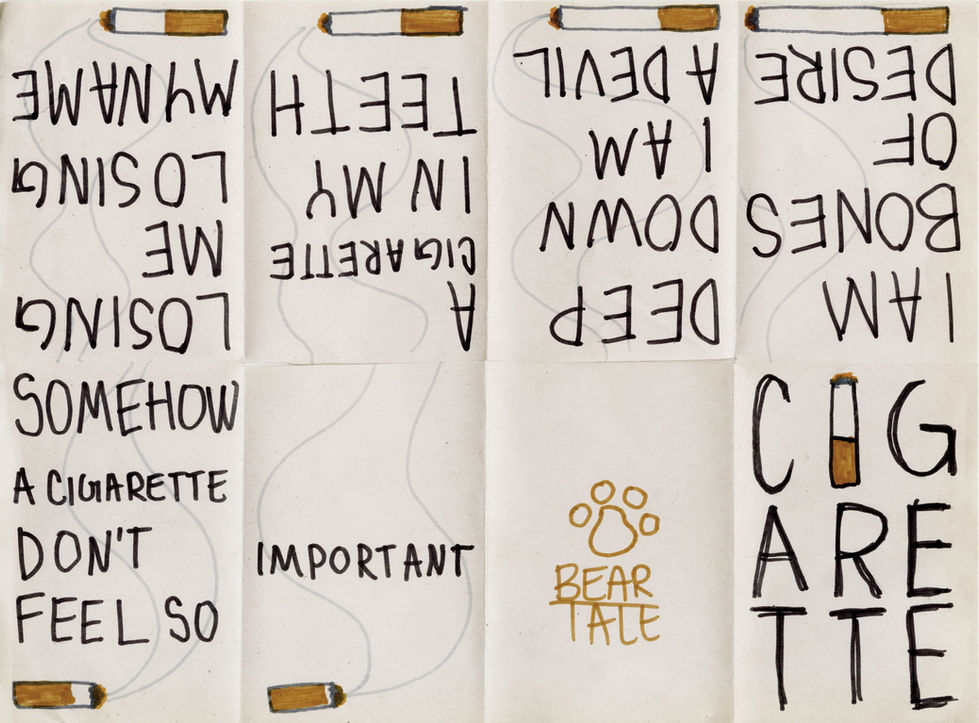 CIG
ARE
TTE
I AM
BONES
OF
DESIRE
DEEP
DOWN
I AM
A DEVIL
A
CIGARETTE
IN MY
TEETH
LOSING
ME
LOSING
MY NAME
SOMEHOW
A CIGARETTE
DON'T
FEEL SO
IMPORTANT
BEAR
TALE